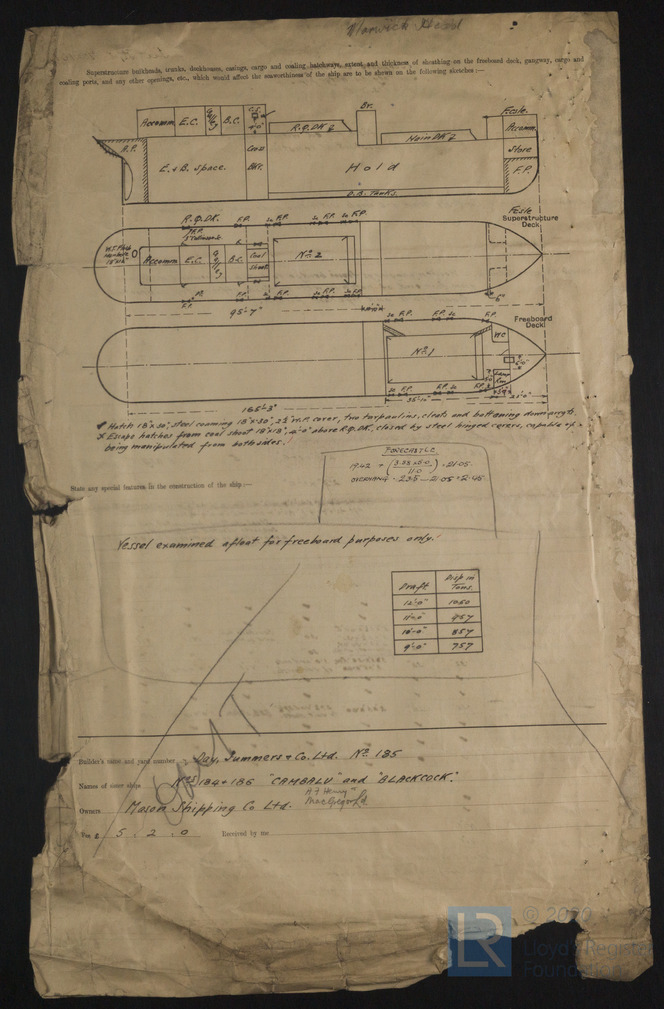 Warwick Head
Superstructure bulkheads, trunks, deckhouses, casings, cargo and coaling hatchways, extent and thickness of sheathing on the freeboard deck, gangway, cargo and
coaling ports, and any other openings, etc., which would affect the seaworthiness of the ship are to be shown on the following sketches:—
Br.
Fcsle.
Accomm. E.C. Galley B.C.
R.Q.DK 2 Main DK 2 Accomm.
A.P. E. & B. Space. Coal Bkr. Hold Store
F.P.
D.B. Tanks.
R.Q.DK. F.P. F.P. F.P. F.P.
Fcsle
Superstructure
Deck
Accomm. E.C. Galley B.C. Coal Shoot Nº 2
F.P. F.P. F.P. F.P.
6"
95'-7"
Freeboard
Deck
F.P. F.P. F.P.
Nº 1
WC
F.P. F.P. F.P.
35'-10"
165'-3"
Hatch 18"x30", steel coaming 18"x30", 2½" W.P. cover, two tarpaulins, cleats and battening down arrgts.
Escape hatches from coal shoot 18"x18", 4'-0" above R.Q.DK, closed by steel hinged covers, capable of
being manipulated from both sides.
FORECASTLE
OVERHANG
State any special features in the construction of the ship:—
Vessel examined afloat for freeboard purposes only.
Draft Disp in Tons.
12'-0" 1060
11'-0" 957
10'-0" 857
9'-0" 757
Builder's name and yard number Day, Summers & Co. Ltd. Nº 185
Names of sister ships Nºs 184 & 186 "CAMBALU" and "BLACKCOCK".
Owners Mason Shipping Co Ltd.
A F Henry & MacGregor Ld
Fee £ 5 . 2 . 0 Received by me
LR
© 2020
Lloyd's Register
Foundation